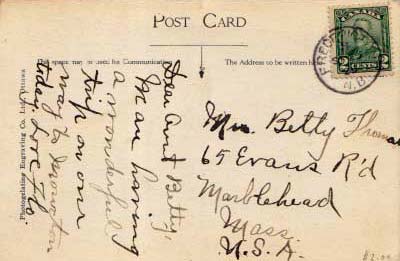 POST CARD
This space may be used for Communication
The Address to be written here
CANADA
2 CENTS 2
FREDERICTON
N.B.
Dear Aunt Betty,
Am having
a wonderful
trip on our
way to Moncton
today. Love Flo.
Mrs. Betty Thomas
65 Evans R'd
Marblehead
Mass.
U.S.A.
Photogelatine Engraving Co. Ltd. Ottawa